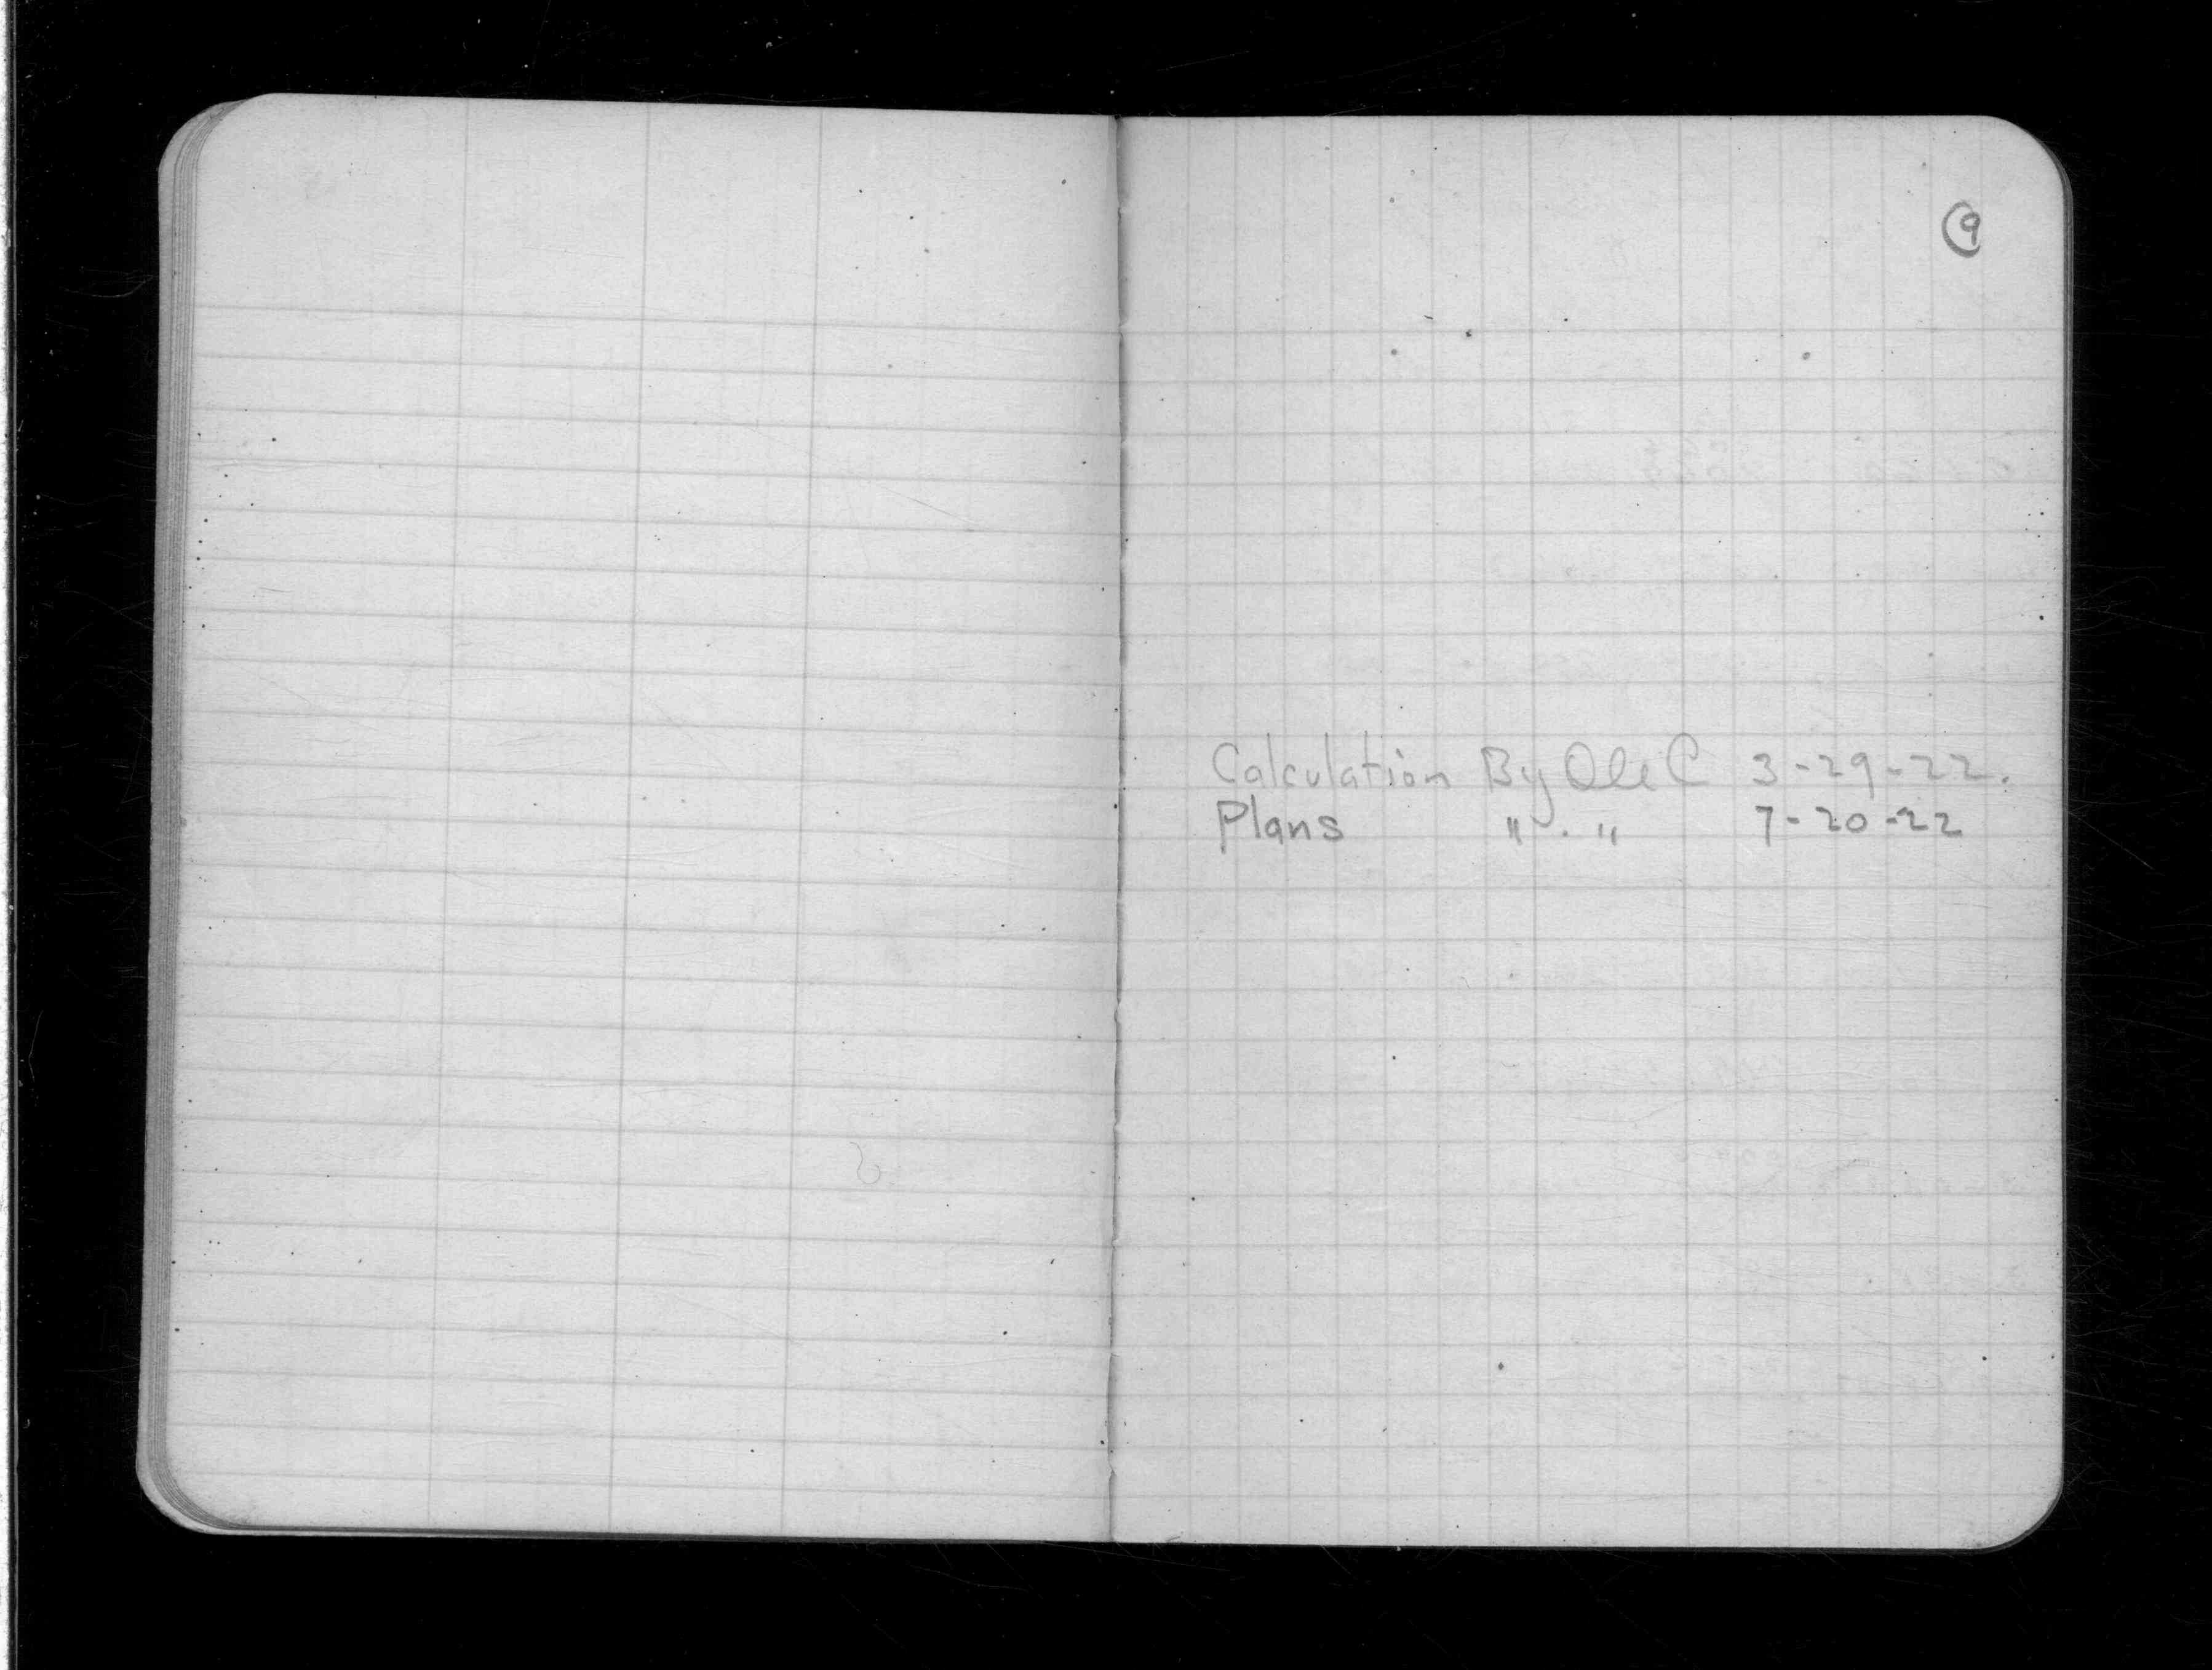 9
Calculation By Ole C 3-29-22.
Plans " . " 7-20-22